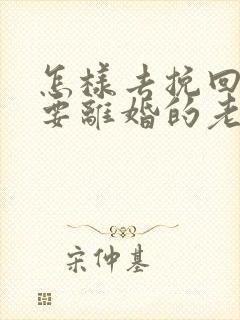 怎樣去挽回
要離婚的老
宋仲基